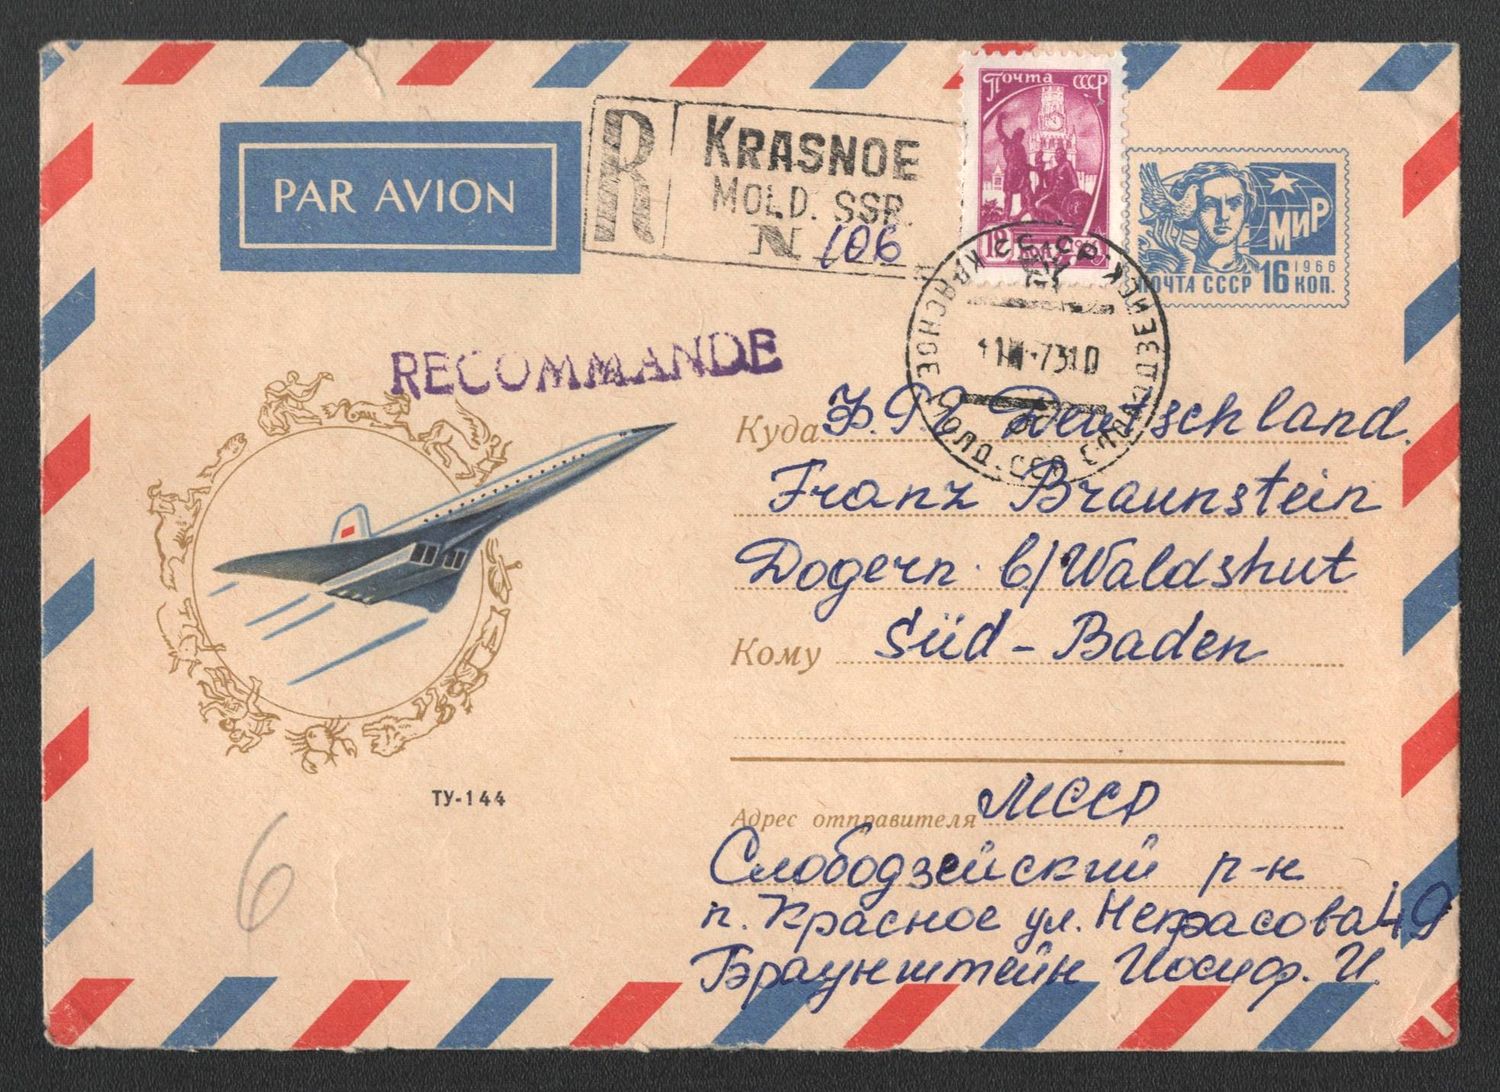 PAR AVION
R
KRASNOE
MOLD. SSR.
N 106
Почта СССР
12
МИР
1966
ПОЧТА СССР 16 КОП.
RECOMMANDE
73 10
Куда
Deutschland.
Franz Braunstein
Dogern b/Waldshut
Кому Süd-Baden
ТУ-144
Адрес отправителя МССР
Слободзейский р-н
п. Красное ул. Некрасова 49
Браунштейн Иосиф. И.
6